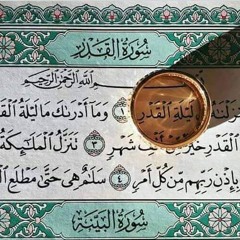 سُورَةُ القَدْرِ
بِسْمِ ٱللَّهِ ٱلرَّحْمَٰنِ ٱلرَّحِيمِ
لَيْلَةِ ٱلْقَدْرِ ١ وَمَآ أَدْرَىٰكَ مَا لَيْلَةُ
ٱلْقَدْرِ خَيْرٌ مِّنْ أَلْفِ شَهْرٍ ٣ تَنَزَّلُ ٱلْمَلَٰٓئِكَةُ
بِإِذْنِ رَبِّهِم مِّن كُلِّ أَمْرٍ ٤ سَلَٰمٌ هِىَ حَتَّىٰ مَطْلَعِ
سُورَةُ البَيِّنَةِ